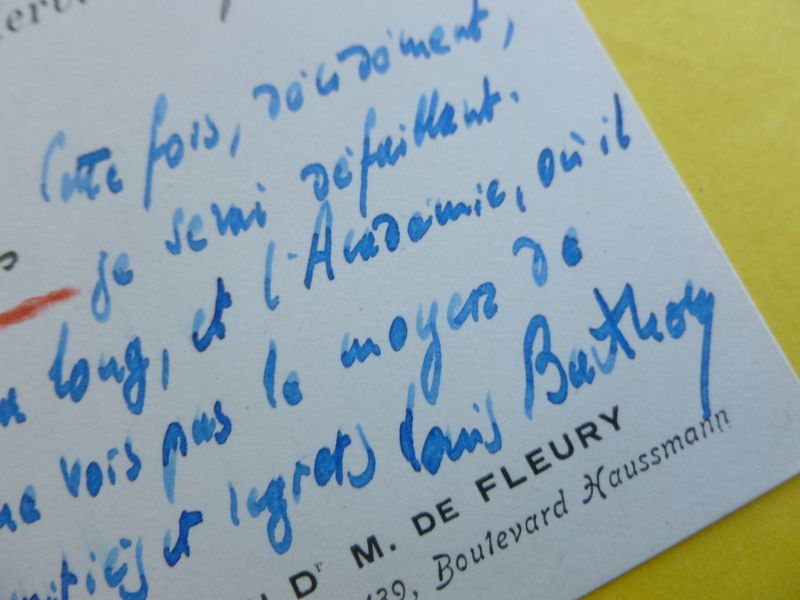 Cette fois, décidément,
je serai défaillant.
long, et l'Académie, où il
vois pas le moyen de
et regrets Louis Barthou
Dr M. DE FLEURY
139, Boulevard Haussmann